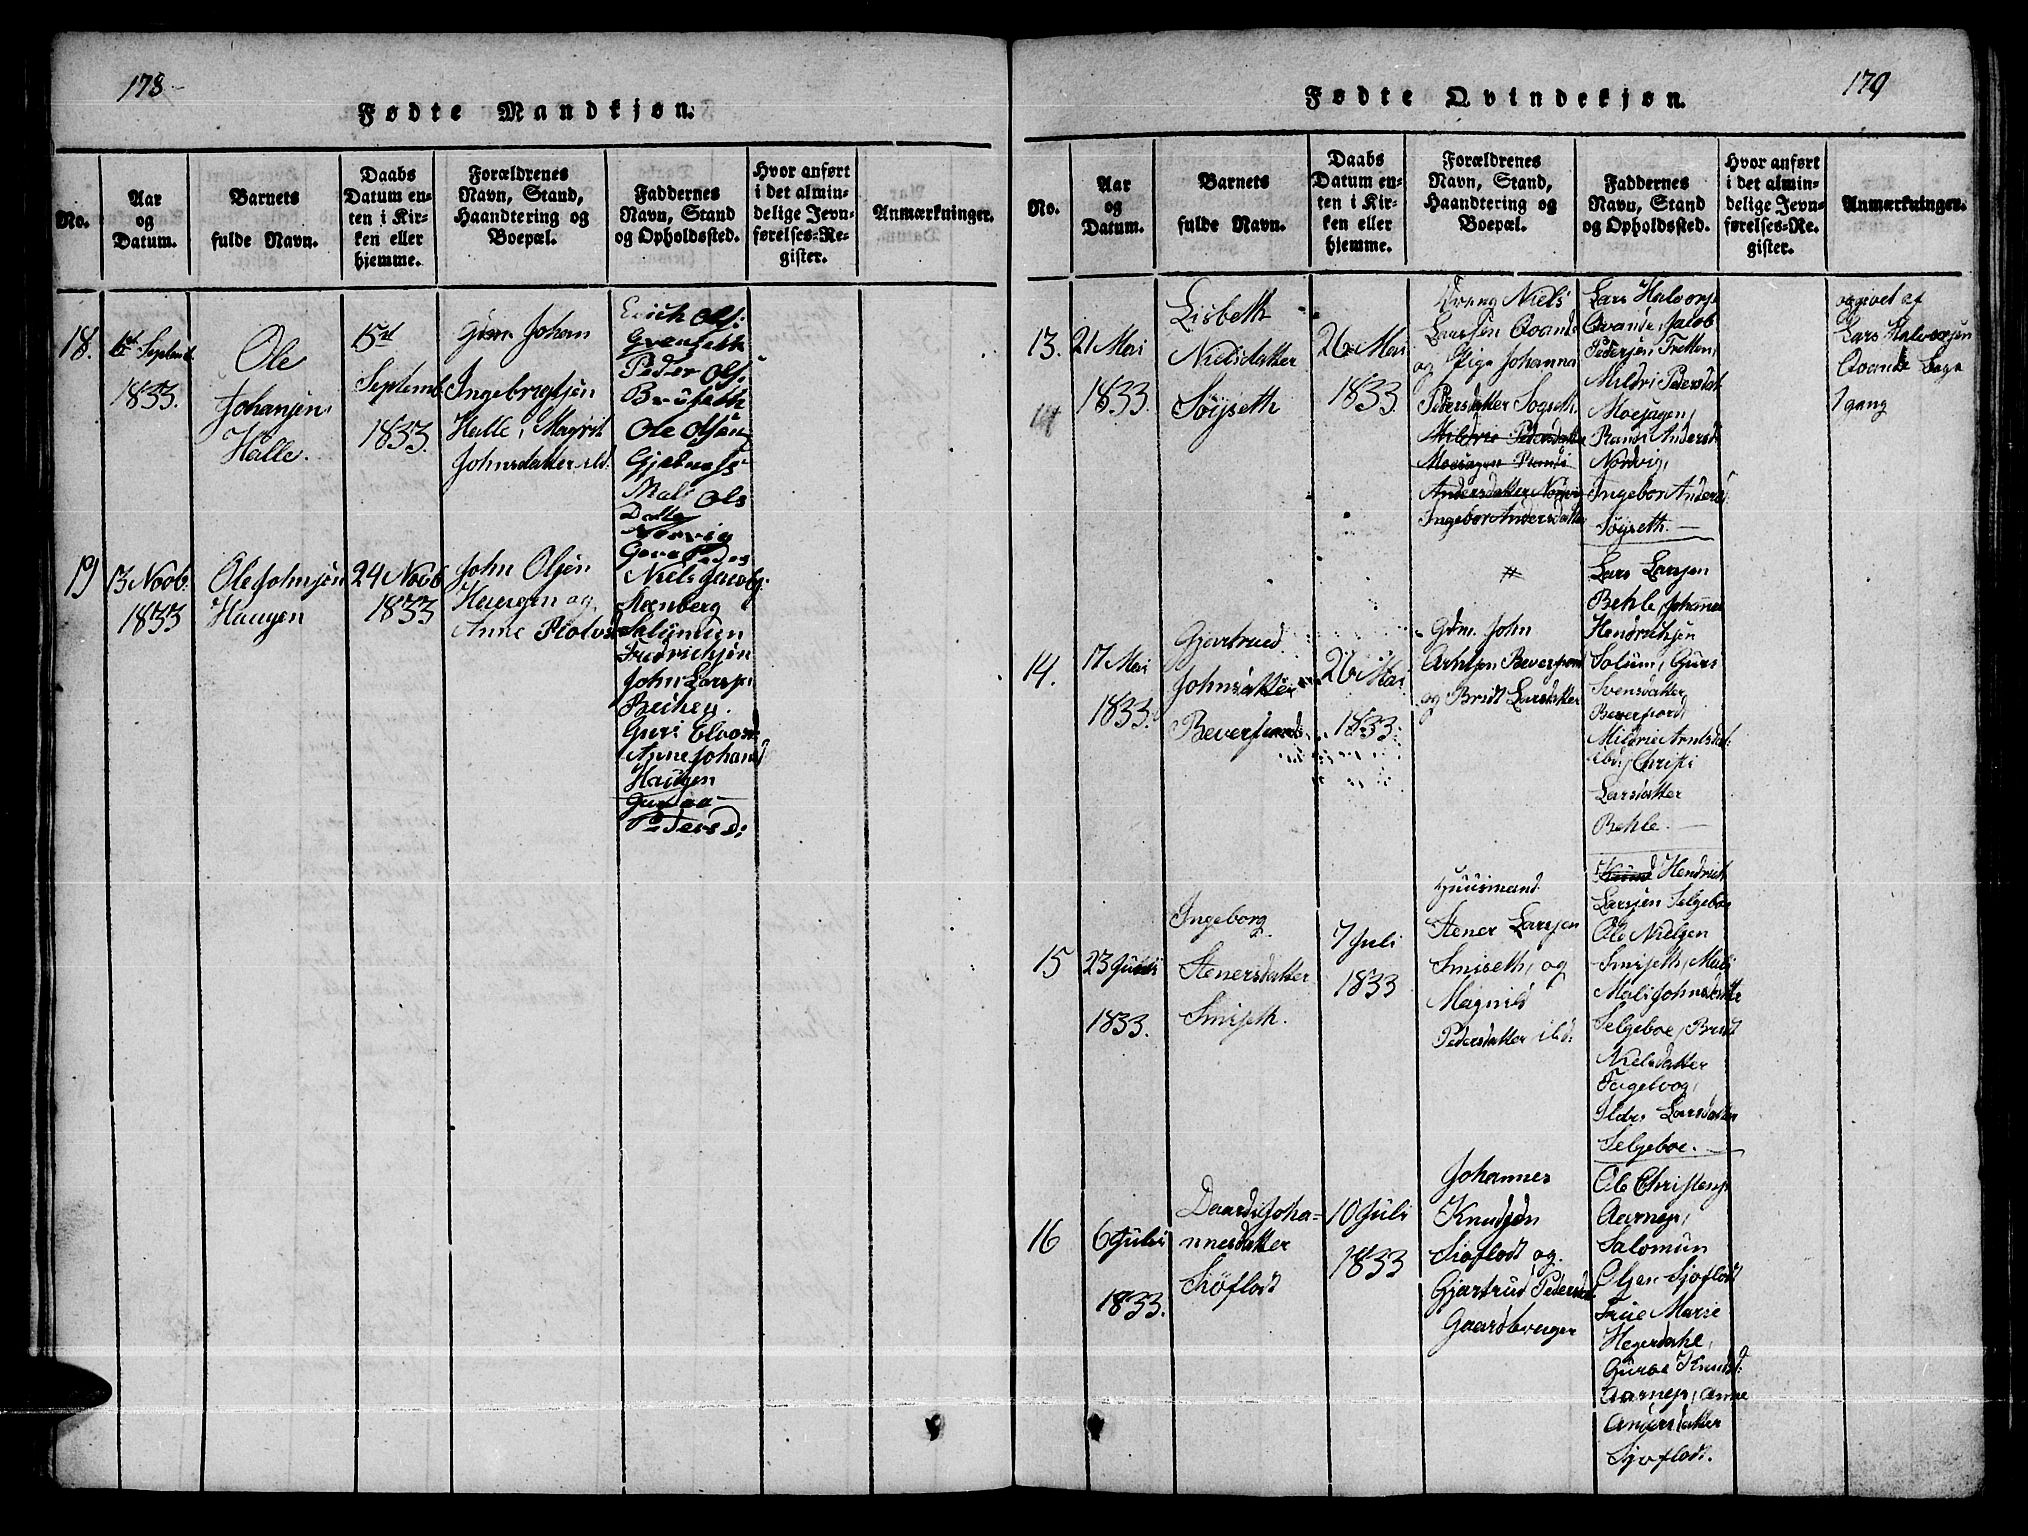 178
Fødte Mandkjøn.
No.
Aar
og
Datum.
Barnets
fulde Navn.
Daabs
Datum en-
ten i Kir-
ken eller
hjemme.
Forældrenes
Navn, Stand,
Haandtering og
Boepæl.
Faddernes
Navn, Stand
og Opholdssted.
Hvor anført
i det almin-
delige Jevn-
førelses-Re-
gister.
Anmærkninger.
18.
Septemb.
1833.
Ole
Johansen
Halle.
15de
Septemb.
1833.
Gdm. Johan
Ingebrigtsen
Halle, Magrit
Johnsdatter ibd.
Erich Ols:
Peder Ols:
Bruseth
Ole Olsen
Gjelnæss
Mali Ols
Datter
Norvig
19
13 Novb.
1833
Ole Johnsen
Haugen
24 Novb
1833
John Olsen
Haugen og
Anne
Niels Jacobs:
Salomon
Fredrichsen
John Larss
Guri
Anne Johansd
Haugen
Pedersd:
179
Fødte Qvindekjøn.
No.
Aar
og
Datum.
Barnets
fulde Navn.
Daabs
Datum en-
ten i Kir-
ken eller
hjemme.
Forældrenes
Navn, Stand,
Haandtering og
Boepæl.
Faddernes
Navn, Stand
og Opholdssted.
Hvor anført
i det almin-
delige Jevn-
førelses-Re-
gister.
Anmærkninger.
13.
21 Mai
1833.
Lisbeth
Nielsdatter
Søyseth
26 Mai
1833.
Dreng Niels
Larsen Qvande
og Pige Johanna
Pedersdatter Sogseth.
Mildrie Pedersdatter
Moesagen Randi
Andersdatter Norvig
Ingebor Andersdatter
Lars Halvors
Qvande, Jacob
Pedersen Tretten,
Mildri Pedersdat
Moesagen,
Randi Andersd
Nordvig,
Ingebor Anders
Søyseth.
opgivet af
Lars Halvorsen
Qvande
1 gang
14
14.
17 Mai
1833.
Gjertrud
Johnsdatter
Beverfiord
26 Mai
1833.
#
Gdm. John
Arntsen Beverfiord
og Bridt Larsdatter
Lars Larsen
Behle, Johannes
Hendrichsen
Solum, Guri
Svensdatter
Beverfiord,
Mildrie Arntsdat:
ibd, Christi
Larsdatter
Behle.
15
23 Juni
1833.
Ingeborg
Stenersdatter
Smiseth.
7 Juli
1833
Huusmand
Stener Larsen
Smiseth, og
Magnild
Pedersdatter ibd:
Knud Hendrich
Larsen Selgeboe
Ole Nielsen
Smiseth, Mali
Mali Johnsdatte
Selgeboe, Bridt
Nielsdatter
Fugelvog,
Larsdatter
Selgeboe.
16
6 Juli
1833.
Daardi Joha-
nnesdatter
Siøflodt
10 Juli
1833
Johannes
Knudsen
Siøflodt og
Gjertrud Pedersdat
Ole Christens
Aarnes,
Salomun
Olsen Sjøflodt
Frue Marie
Hegerdahl,
Guroe Knudsd:
Aarnes, Anne
Andersdatter
Sjøflodt.